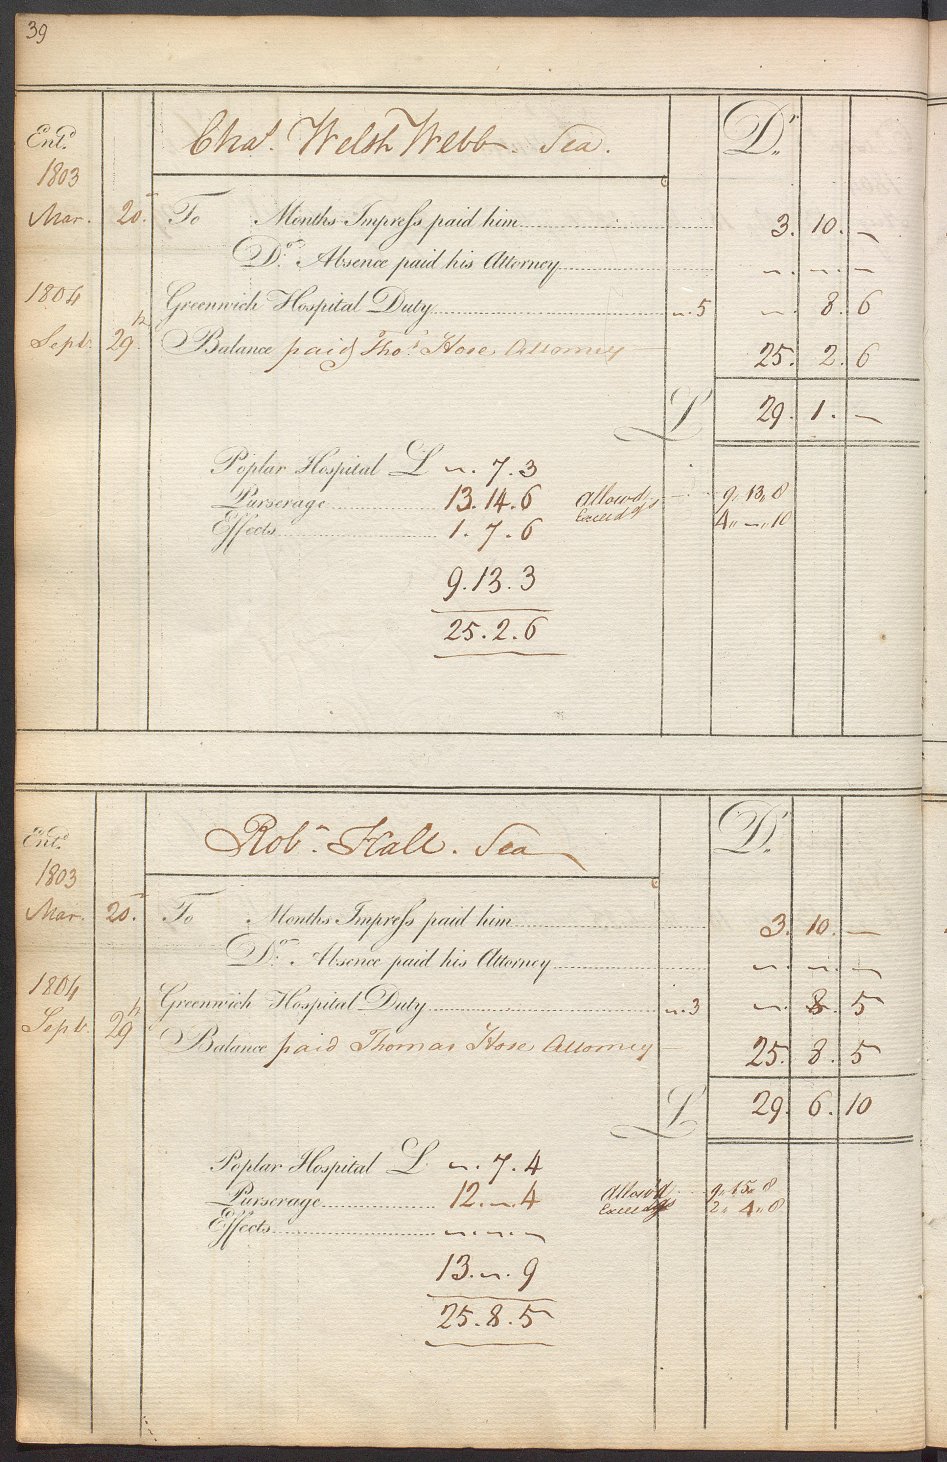 39
Entd. Chas. Welsh Webb. Sea. Dr.
1803
Mar. 20. To Months Impress paid him 3. 10. —
Do. Absence paid his Attorney —. —. —
1804 Greenwich Hospital Duty —. 5 —. 8. 6
Sept. 29th Balance paid Thos. Hose, Attorney 25. 2. 6
£ 29. 1. —
Poplar Hospital £ —. 7. 3
Purserage 13. 14. 6 Allowd 9,, 13,, 8
Effects 1. 7. 6 Exceedgs 4,, —,, 10
9. 13. 3
25. 2. 6
Entd. Robt. Hall. Sea Dr.
1803
Mar. 20. To Months Impress paid him 3. 10. —
Do. Absence paid his Attorney —. —. —
1804 Greenwich Hospital Duty —. 3 —. 8. 5
Sept. 29th Balance paid Thomas Hose, Attorney 25. 8. 5
£ 29. 6. 10
Poplar Hospital £ —. 7. 4
Purserage 12. —. 4 Allowd 9,, 15,, 8
Effects —. —. — Exceedgs 2,, 4,, 8
13. —. 9
25. 8. 5